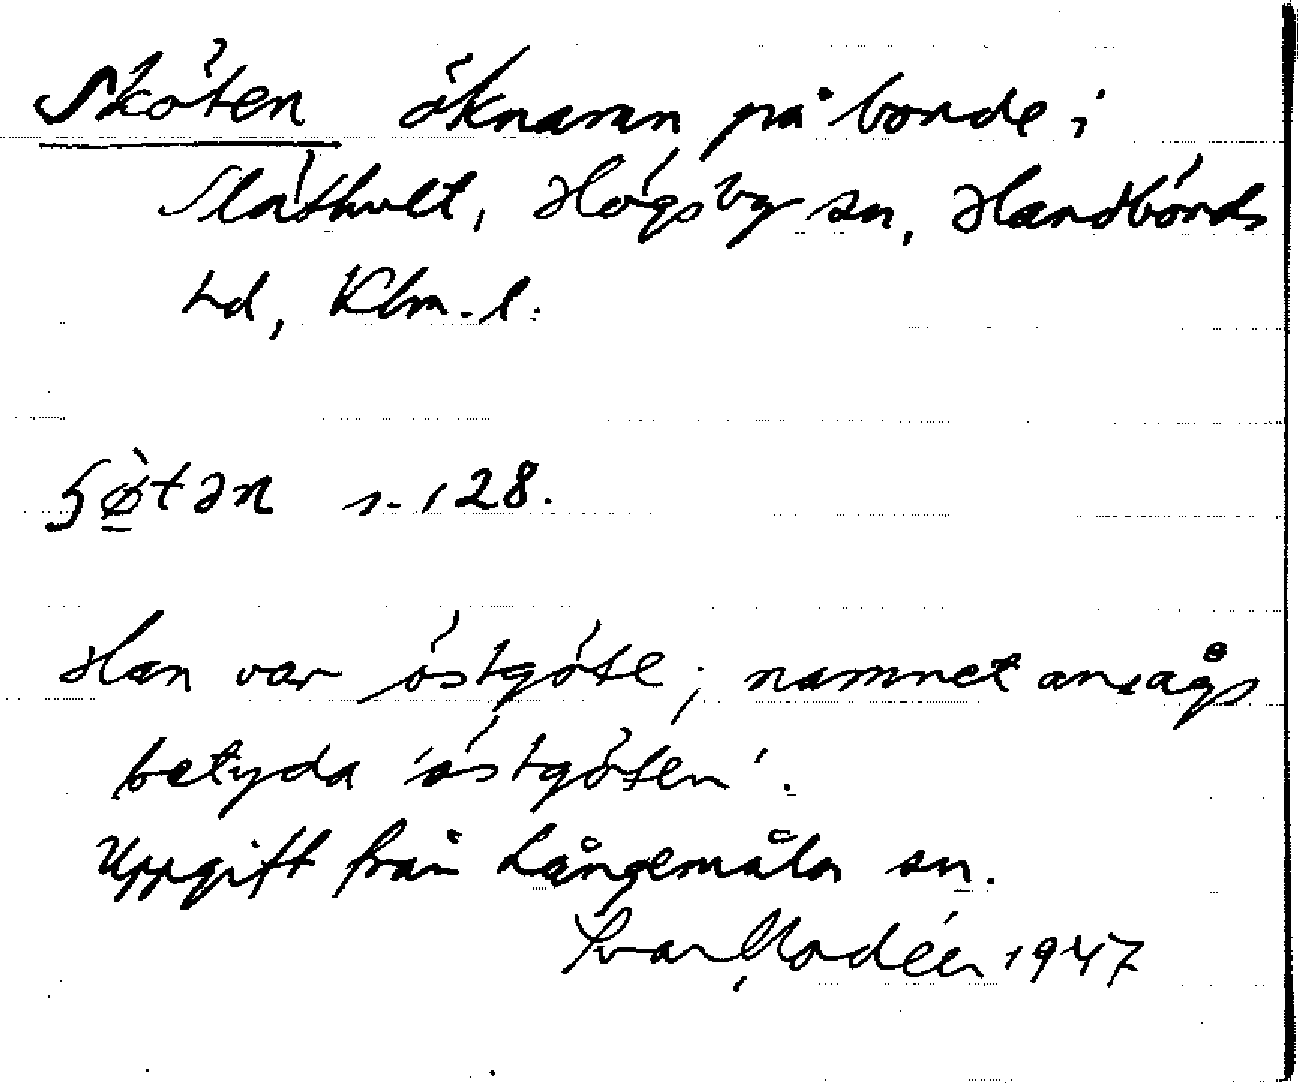 Sköten öknamn på bonde i
Slåthult, Högsby sn, Handbörds
hd, Klm. l.
ɧø̀tən s. 128.
Han var östgöte; namnet ansågs
betyda 'östgöten'.
Uppgift från Långemåla sn.
Ivar Modéer 1947